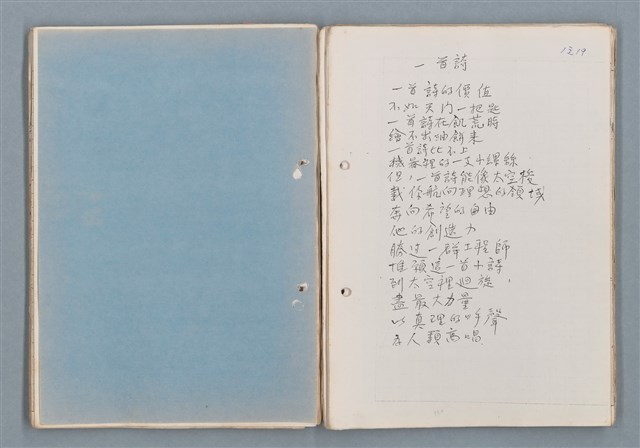 12.19
一首詩
一首詩的價值
不如天內一把匙
一首詩在飢荒時
繪不出油餅来
一首詩比不上
裡的一支小螺絲
但，一首詩能像太空梭
載你航向理想的領域
奔向希望的自由
他的創造力
勝過一群工程師
惟願這一首小詩
到太空裡迴旋，
盡最大力量
以真理的呼聲
為人類高唱